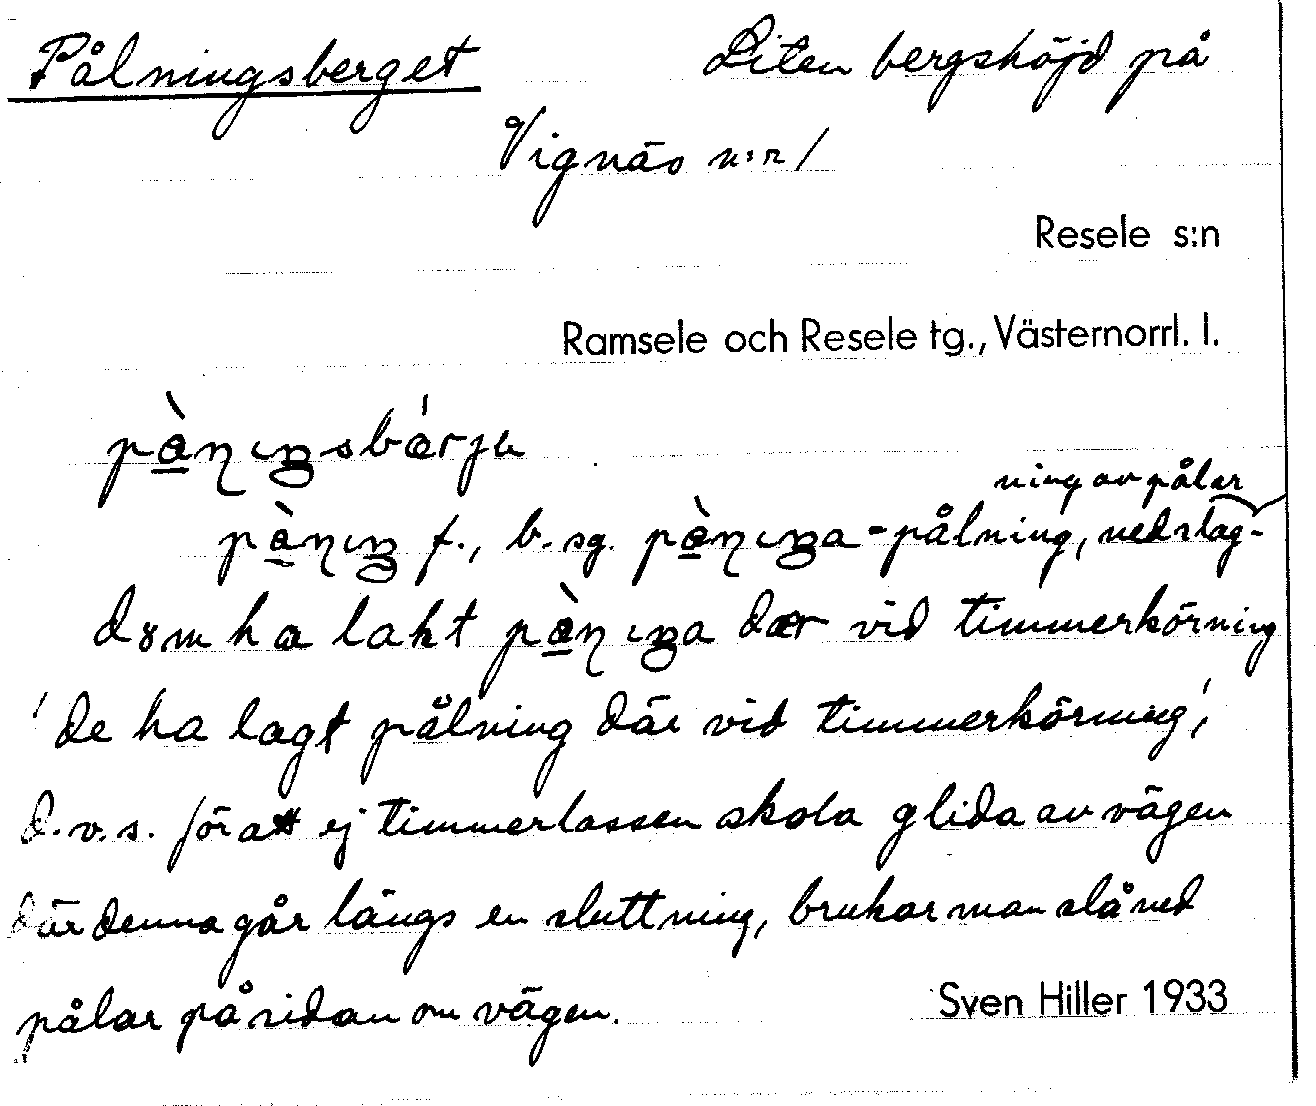 Pålningsberget Liten bergshöjd på
Vignäs n:r 1
Resele s:n
Ramsele och Resele tg., Västernorrl. l.
pà̱ɳɩŋsbárju
ning av pålar
pà̱ɳɩŋ f., b. sg. pà̱ɳɩŋa = pålning, nedslag-
dɤm ha lakt pà̱ɳɩŋa dær vid timmerkörning
'de ha lagt pålning där vid timmerkörning',
d.v.s. för att ej timmerlassen skola glida av vägen
där denna går längs en sluttning, brukar man slå ned
pålar på sidan om vägen.
Sven Hiller 1933